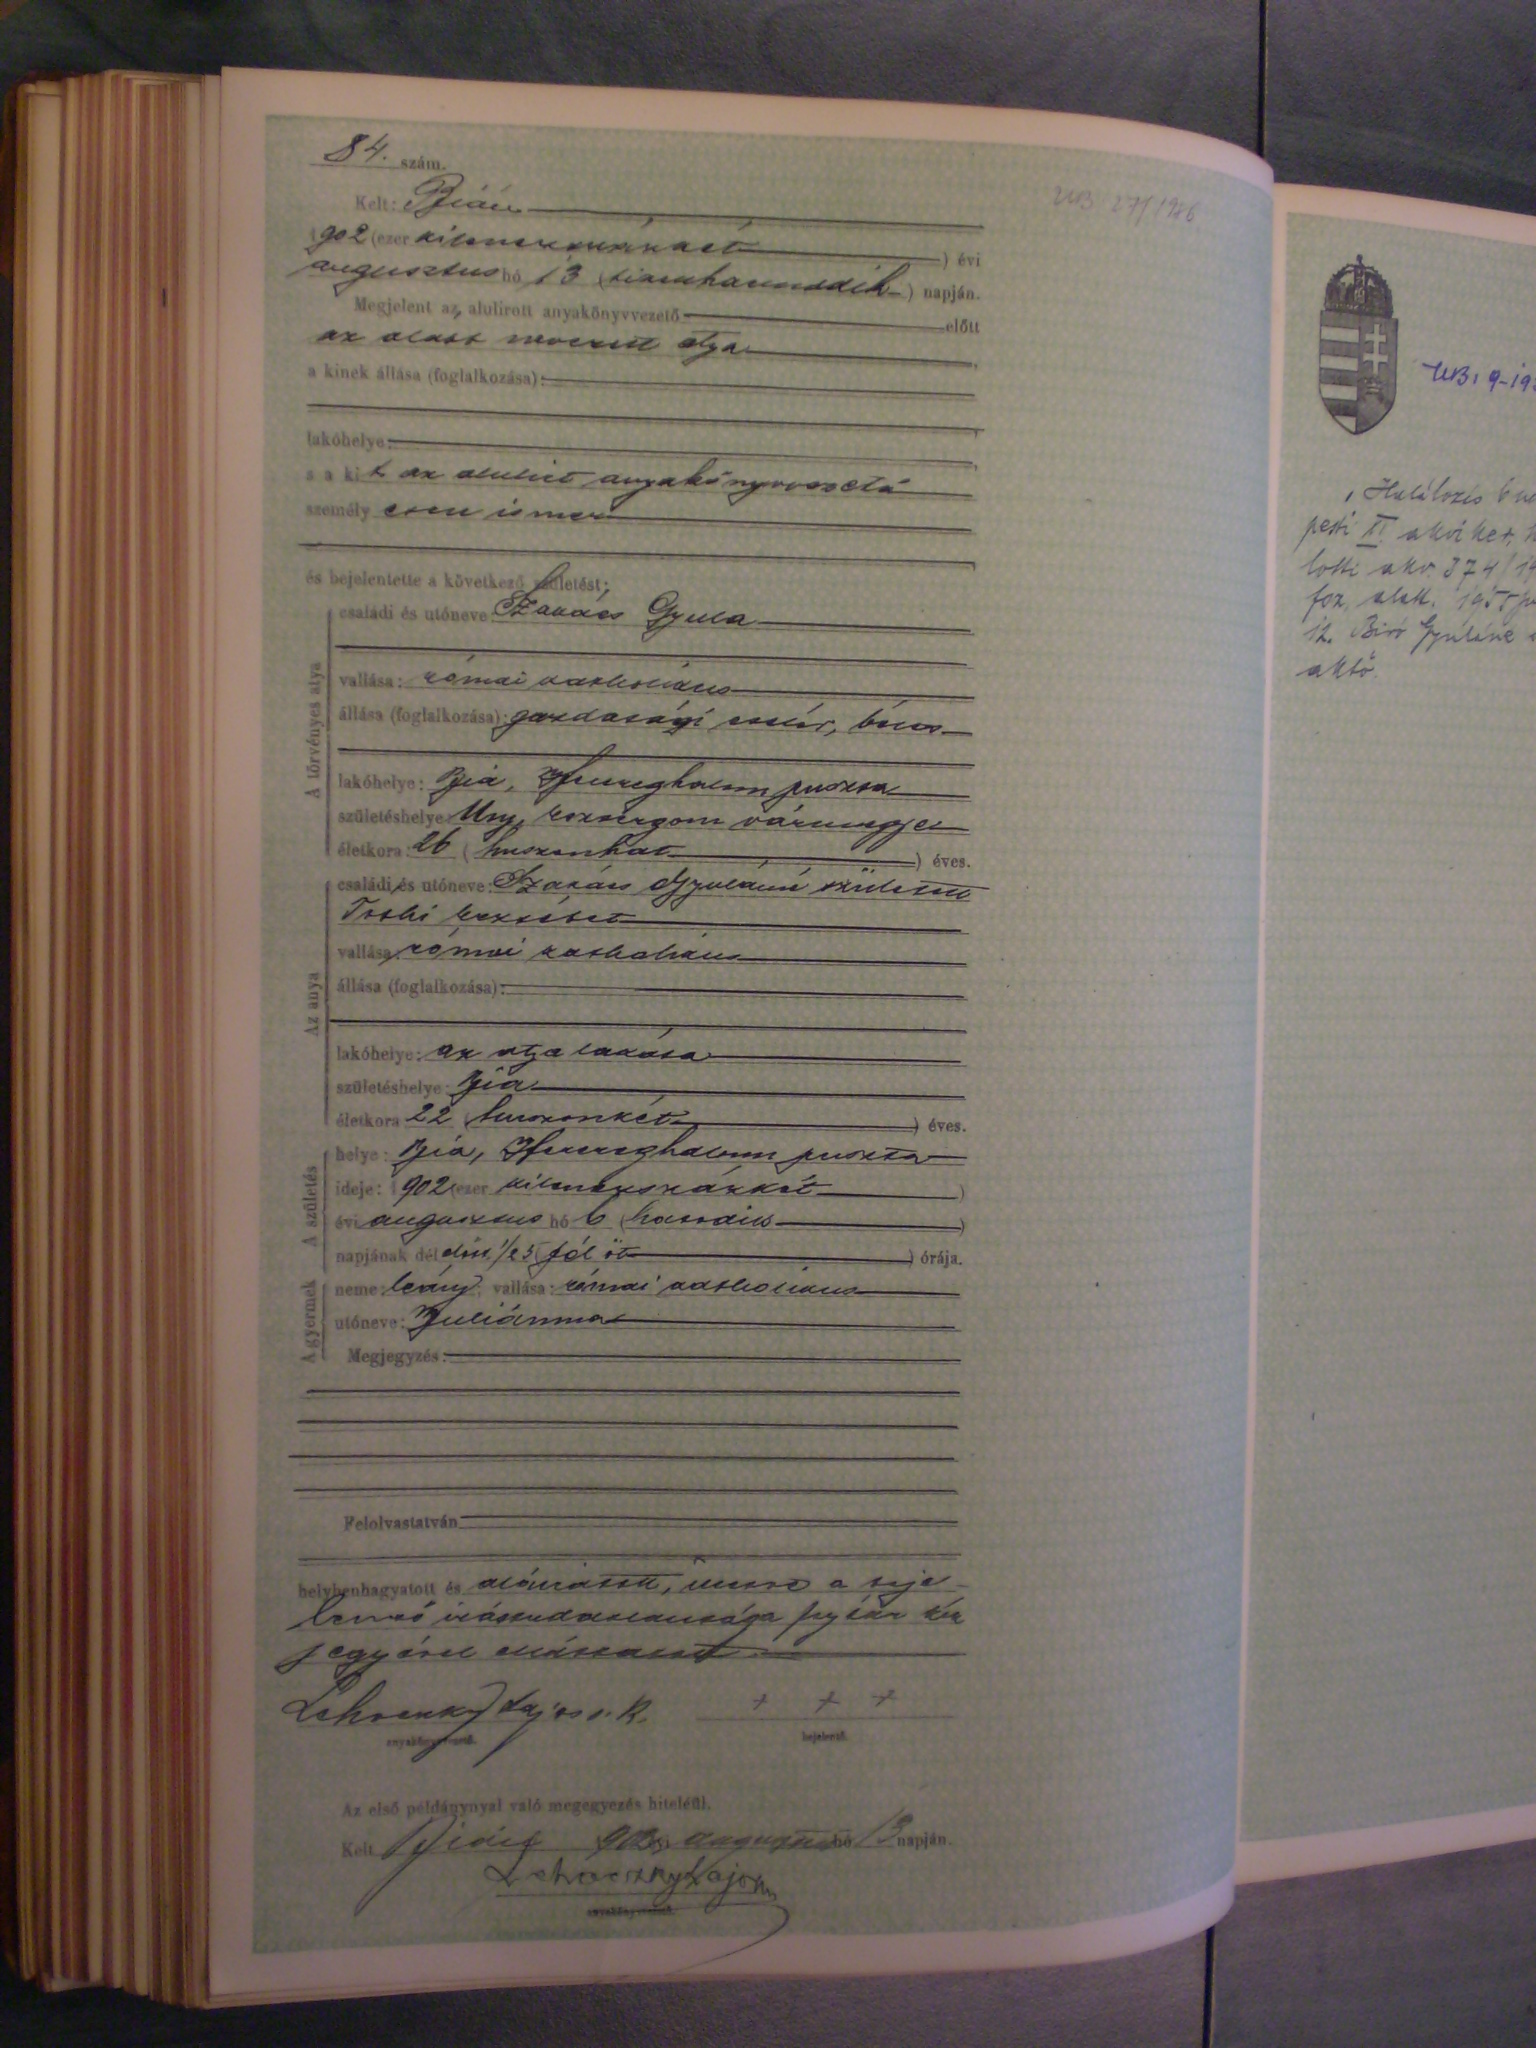 84. szám.
Kelt: Bián
1902 (ezer kilenczszázkét) évi
augusztus hó 13 (tizenharmadik) napján.
Megjelent az alulirott anyakönyvvezető előtt
az alább nevezett atya
a kinek állása (foglalkozása):
lakóhelye:
s a ki t az alulirt anyakönyvvezető
személy esen ismer
és bejelentette a következő születést:
A törvényes atya
családi és utóneve: Szakács Gyula
vallása: római katholikus
állása (foglalkozása): gazdasági cseléd, béres
lakóhelye: Bia, Herceghalom puszta
születéshelye: Uny, Esztergom vármegye
életkora: 26 (huszonhat) éves.
Az anya
családi és utóneve: Szakács Gyuláné született
Erzsébet
vallása: római katholikus
állása (foglalkozása):
lakóhelye: az atya lakása
születéshelye: Bia
életkora 22 (huszonkét) éves.
A születés
helye: Bia, Herceghalom puszta
ideje: 1902 (ezer kilenczszázkét)
évi augusztus hó 6 (hatodik)
napjának dél előtt 1/2 5 (fél öt) órája.
A gyermek
neme: leány; vallása: római katholikus
utóneve: Juliánna
Megjegyzés:
Felolvastatván
helybenhagyatott és aláiratott, illetve a beje-
lentő irástudatlansága folytán kéz
jegyével elláttatott
Lehoczky Lajos s. k. + + +
anyakönyvvezető. bejelentő.
Az első példánynyal való megegyezés hiteléül.
Kelt Bián 1902 augusztus hó 13 napján.
Lehoczky Lajos
anyakönyvvezető.
UB 9-19
Halálozás
pesti XI. akv. ker.
lotti akv. 374/19
foz. alatt. 1955
12. Biró Gyuláné
aktő.